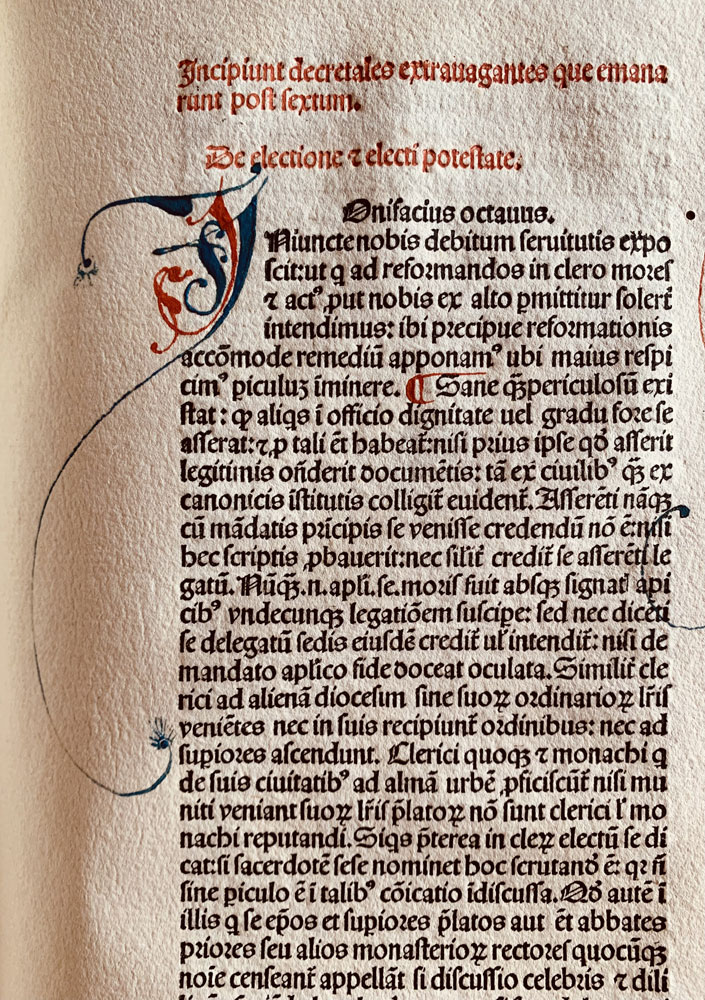 Incipiunt decretales extrauagantes que emana
runt post sextum.
De electione ⁊ electi potestate.
Bonifacius octauus.
INiuncte nobis debitum seruitutis expo
scit: ut q ad reformandos in clero mores
⁊ actꝰ ꝓut nobis ex alto ꝑmittitur solert̃
intendimus: ibi precipue reformationis
accõmode remediũ apponamꝰ ubi maius respi
cimꝰ ꝑiculuꝫ ĩminere. ¶ Sane qꝫ̃ periculosũ exi
stat: ꝙ aliqs ĩ officio dignitate uel gradu fore se
asserat: ⁊ ꝓ tali ẽt habeat̃: nisi prius ipse qđ asserit
legitimis oñderit documẽtis: tã ex ciuilibꝰ qꝫ̃ ex
canonicis ĩstitutis colligit̃ euident̃. Asserẽti nãqꝫ
cũ mãdatis prĩcipis se venisse credendũ nõ ẽ: nisi
hec scriptis ꝓbauerit: nec silit̃ credit̃ se asserẽti le
gatũ. Nũqꝫ̃.n. apli. se. moris fuit absqꝫ signat̃ api
cibꝰ vndecunqꝫ legatiõem suscipe: sed nec dicẽti
se delegatũ sedis eiusdẽ credit̃ ul̃ intendit̃: nisi de
mandato aplico fide doceat oculata. Similit̃ cle
rici ad alienã diocesim sine suoꝝ ordinarioꝝ lr̃is
veniẽtes nec in suis recipiunt̃ ordinibus: nec ad
supiores ascendunt. Clerici quoqꝫ ⁊ monachi q
de suis ciuitatibꝰ ad almã urbẽ ꝓficiscũt̃ nisi mu
niti veniant suoꝝ lr̃is p̃latoꝝ nõ sunt clerici l' mo
nachi reputandi. Siqs p̃terea in cleꝝ electũ se di
cat: si sacerdotẽ sese nominet hoc scrutanđ ẽ: qꝛ ñ
sine ꝑiculo ẽ ĩ talibꝰ cõicatio ĩdiscussa. Qđ autẽ ĩ
illis q se ep̃os et supiores p̃latos aut ẽt abbates
priores seu alios monasterioꝝ rectores quocũqꝫ
noĩe censeant̃ appellãt si discussio celebris ⁊ dili